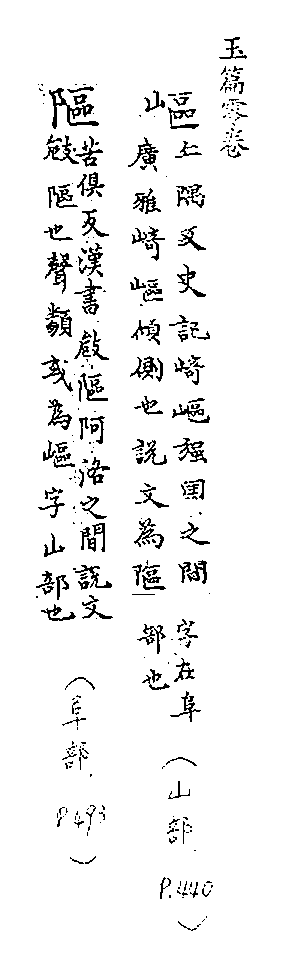 玉篇零卷
嶇丘隅反史記崎嶇强國之間字在阜
山廣雅崎嶇傾側也説文為陭部也
(山部 P.440)
䧢苦俱反漢書䧢阿洛之間説文
䧢也聲類或為嶇字山部也
(阜部 P.493)